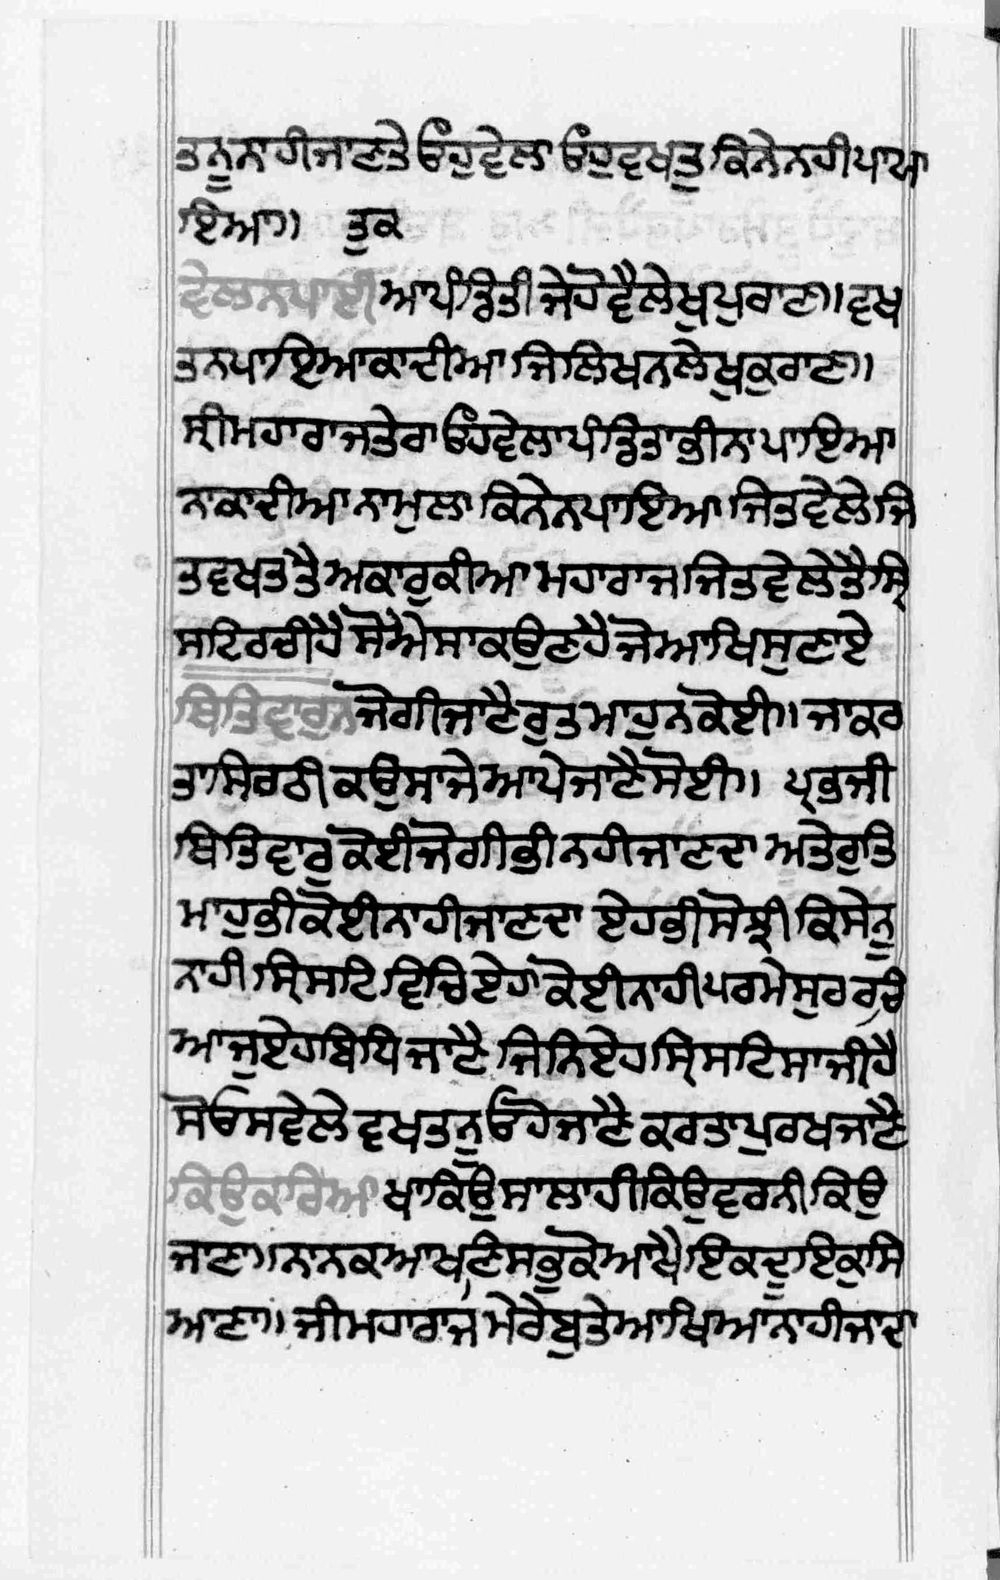 ਤਨੂ ਨਾਹੀ ਜਾਣਤੇ ਓਹੁ ਵੇਲਾ ਓਹੁ ਵਖਤੁ ਕਿਨੇ ਨਹੀ ਪਾਆ
ਇਆ॥ ਤੁਕ
ਵੇਲ ਨ ਪਾਈਆ ਪੰਡਿਤੀ ਜੇ ਹੋਵੈ ਲੇਖੁ ਪੁਰਾਣ॥ ਵਖ
ਤ ਨ ਪਾਇਆ ਕਾਦੀਆ ਜਿ ਲਿਖਨ ਲੇਖੁ ਕੁਰਾਣ॥
ਸ੍ਰੀ ਮਹਾਰਾਜ ਤੇਰਾ ਓਹ ਵੇਲਾ ਪੰਡਿਤਾ ਭੀ ਨਾ ਪਾਇਆ
ਨਾ ਕਾਦੀਆ ਨਾ ਮੁਲਾ ਕਿਨੇ ਨ ਪਾਇਆ ਜਿਤ ਵੇਲੇ ਜਿ
ਤ ਵਖਤ ਤੈ ਅਕਾਰੁ ਕੀਆ ਮਹਾਰਾਜ ਜਿਤ ਵੇਲੇ ਤੈ ਸ੍ਰਿ
ਸਟਿ ਰਚੀ ਹੈ ਸੋ ਐਸਾ ਕਉਣ ਹੈ ਜੋ ਆਖਿ ਸੁਣਾਏ
ਥਿਤਿ ਵਾਰੁ ਨ ਜੋਗੀ ਜਾਣੈ ਰੁਤ ਮਾਹੁ ਨ ਕੋਈ॥ ਜਾ ਕਰ
ਤਾ ਸਿਰਠੀ ਕਉ ਸਾਜੇ ਆਪੇ ਜਾਣੈ ਸੋਈ॥ ਪ੍ਰਭ ਜੀ
ਥਿਤਿ ਵਾਰੁ ਕੋਈ ਜੋਗੀ ਭੀ ਨਹੀ ਜਾਣਦਾ ਅਤੇ ਰੁਤਿ
ਮਾਹੁ ਭੀ ਕੋਈ ਨਾਹੀ ਜਾਣਦਾ ਏਹ ਭੀ ਸੋਝੀ ਕਿਸੇ ਨੂ
ਨਾਹੀ ਸ੍ਰਿਸਟਿ ਵਿਚਿ ਏਹਾ ਕੋਈ ਨਾਹੀ ਪਰਮੇਸੁਰ ਰਚਿ
ਆ ਜੁ ਏਹ ਬਿਧਿ ਜਾਣੈ ਜਿਨਿ ਏਹ ਸ੍ਰਿਸਟਿ ਸਾਜੀ ਹੈ
ਸੋ ਓਸ ਵੇਲੇ ਵਖਤ ਨੂ ਓਹੋ ਜਾਣੈ ਕਰਤਾ ਪੁਰਖ ਜਾਣੈ
ਕਿਉ ਕਰਿ ਆਖਾ ਕਿਉ ਸਾਲਾਹੀ ਕਿਉ ਵਰਨੀ ਕਿਉ
ਜਾਣਾ॥ ਨਾਨਕ ਆਖਣਿ ਸਭੁ ਕੋ ਆਖੈ ਇਕ ਦੂ ਇਕੁ ਸਿ
ਆਣਾ॥ ਜੀ ਮਹਾਰਾਜ ਮੇਰੇ ਬੁਤੇ ਆਖਿਆ ਨਾਹੀ ਜਾਦਾ